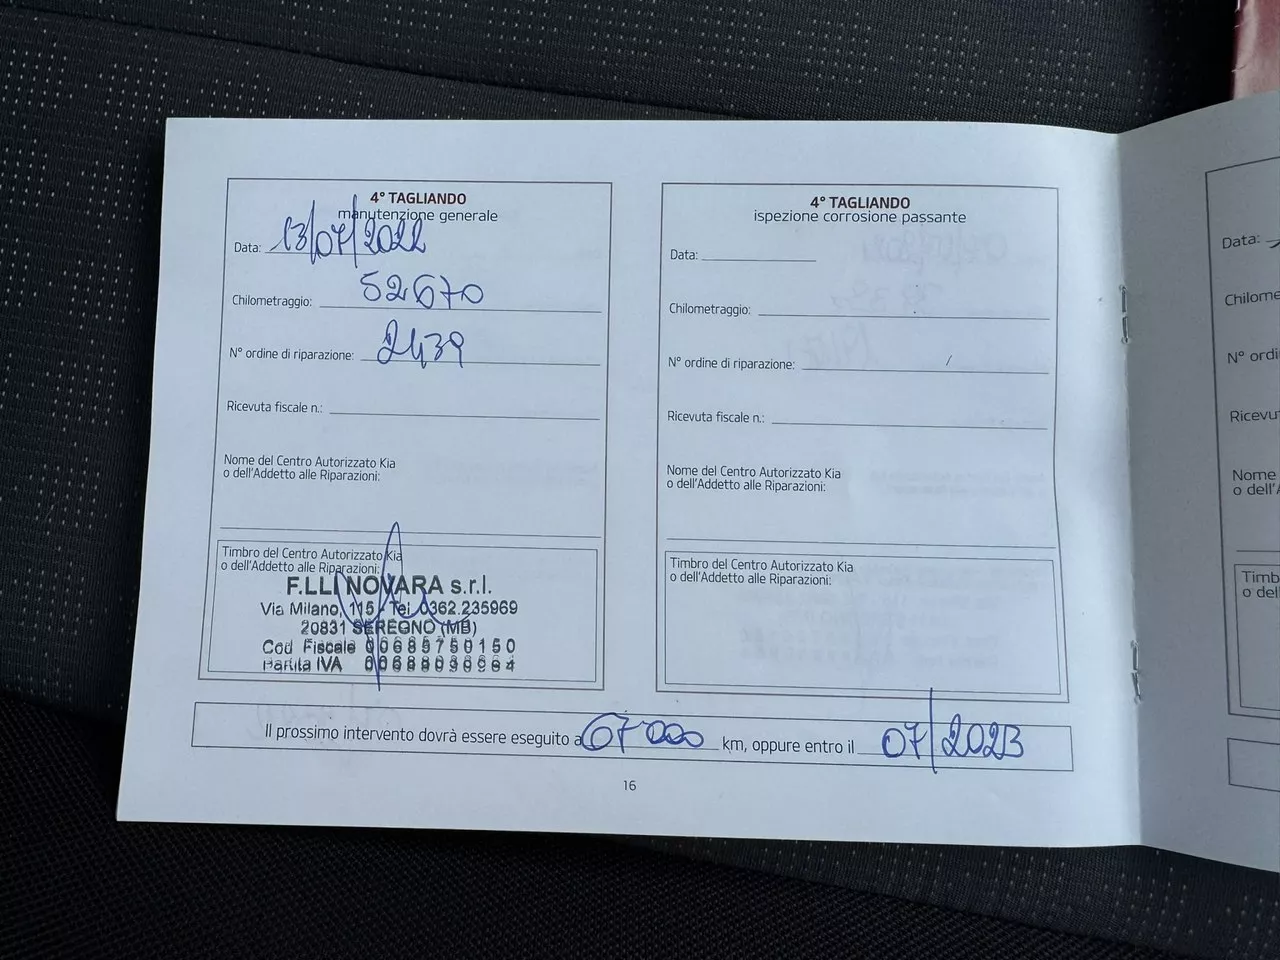 4° TAGLIANDO
manutenzione generale
Data: 13/07/2022
Chilometraggio: 52670
N° ordine di riparazione: 2439
Ricevuta fiscale n.:
Nome del Centro Autorizzato Kia
o dell'Addetto alle Riparazioni:
Timbro del Centro Autorizzato Kia
o dell'Addetto alle Riparazioni:
F.LLI NOVARA s.r.l.
Via Milano, 115 - Tel. 0362.235969
20831 SEREGNO (MB)
Cod Fiscale
Partita IVA
4° TAGLIANDO
ispezione corrosione passante
Data:
Chilometraggio:
N° ordine di riparazione: /
Ricevuta fiscale n.:
Nome del Centro Autorizzato Kia
o dell'Addetto alle Riparazioni:
Timbro del Centro Autorizzato Kia
o dell'Addetto alle Riparazioni:
Il prossimo intervento dovrà essere eseguito a 67000 km, oppure entro il 07/2023
16
Data:
Chilome
N° ordi
Ricevu
Nome
o dell'A
Timb
o del